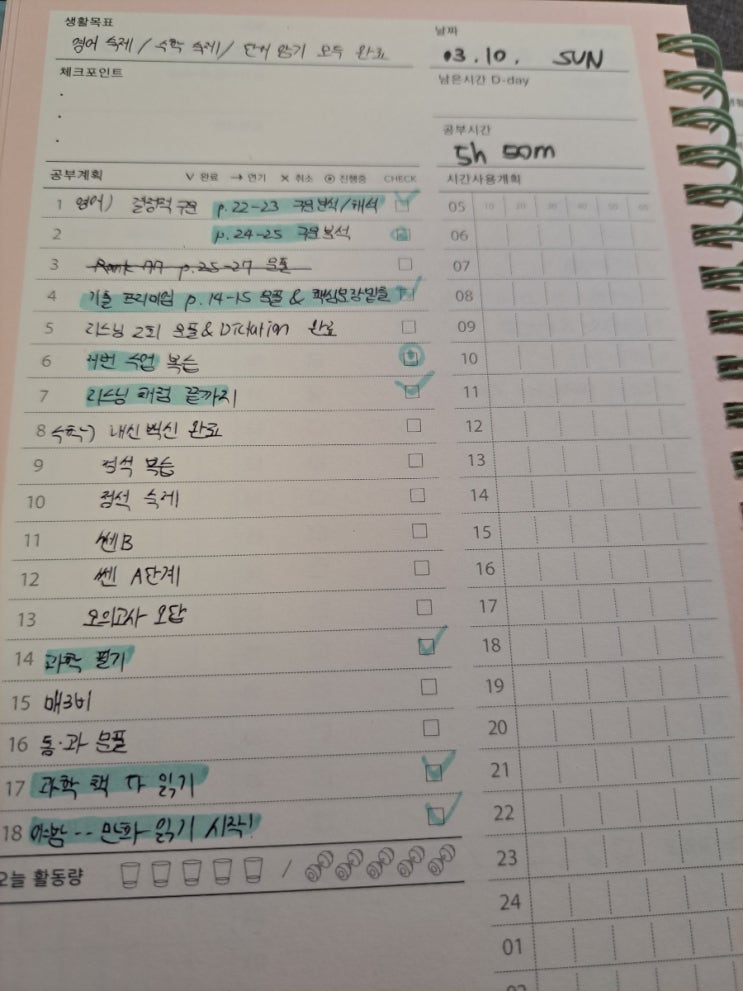 생활목표
영어 숙제 / 수학 숙제 / 단어 암기 모두 완료
날짜
03. 10. SUN
체크포인트
남은시간 D-day
공부시간
5h 50m
공부계획 V 완료 → 연기 X 취소 ⊙ 진행중 CHECK
시간사용계획
1 영어) 결정적 구문 p.22-23 구문분석/해석
2 p.24-25 구문분석
3 Rank 77 p.25-27 문풀
4 기출 프리미엄 p.14-15 문풀 & 핵심문장밑줄
5 리스닝 2회 문풀 & Dictation 완료
6 저번 수업 복습
7 리스닝 해점 끝까지
8 수학) 내신 백신 완료
9 정석 복습
10 정석 숙제
11 쎈B
12 쎈 A단계
13 모의고사 오답
14 과학 필기
15 매3비
16 통·과 문풀
17 과학 책 다 읽기
18 야밤 -- 만화 읽기 시작!
오늘 활동량 /
05 10 20 30 40 50 60
06
07
08
09
10
11
12
13
14
15
16
17
18
19
20
21
22
23
24
01